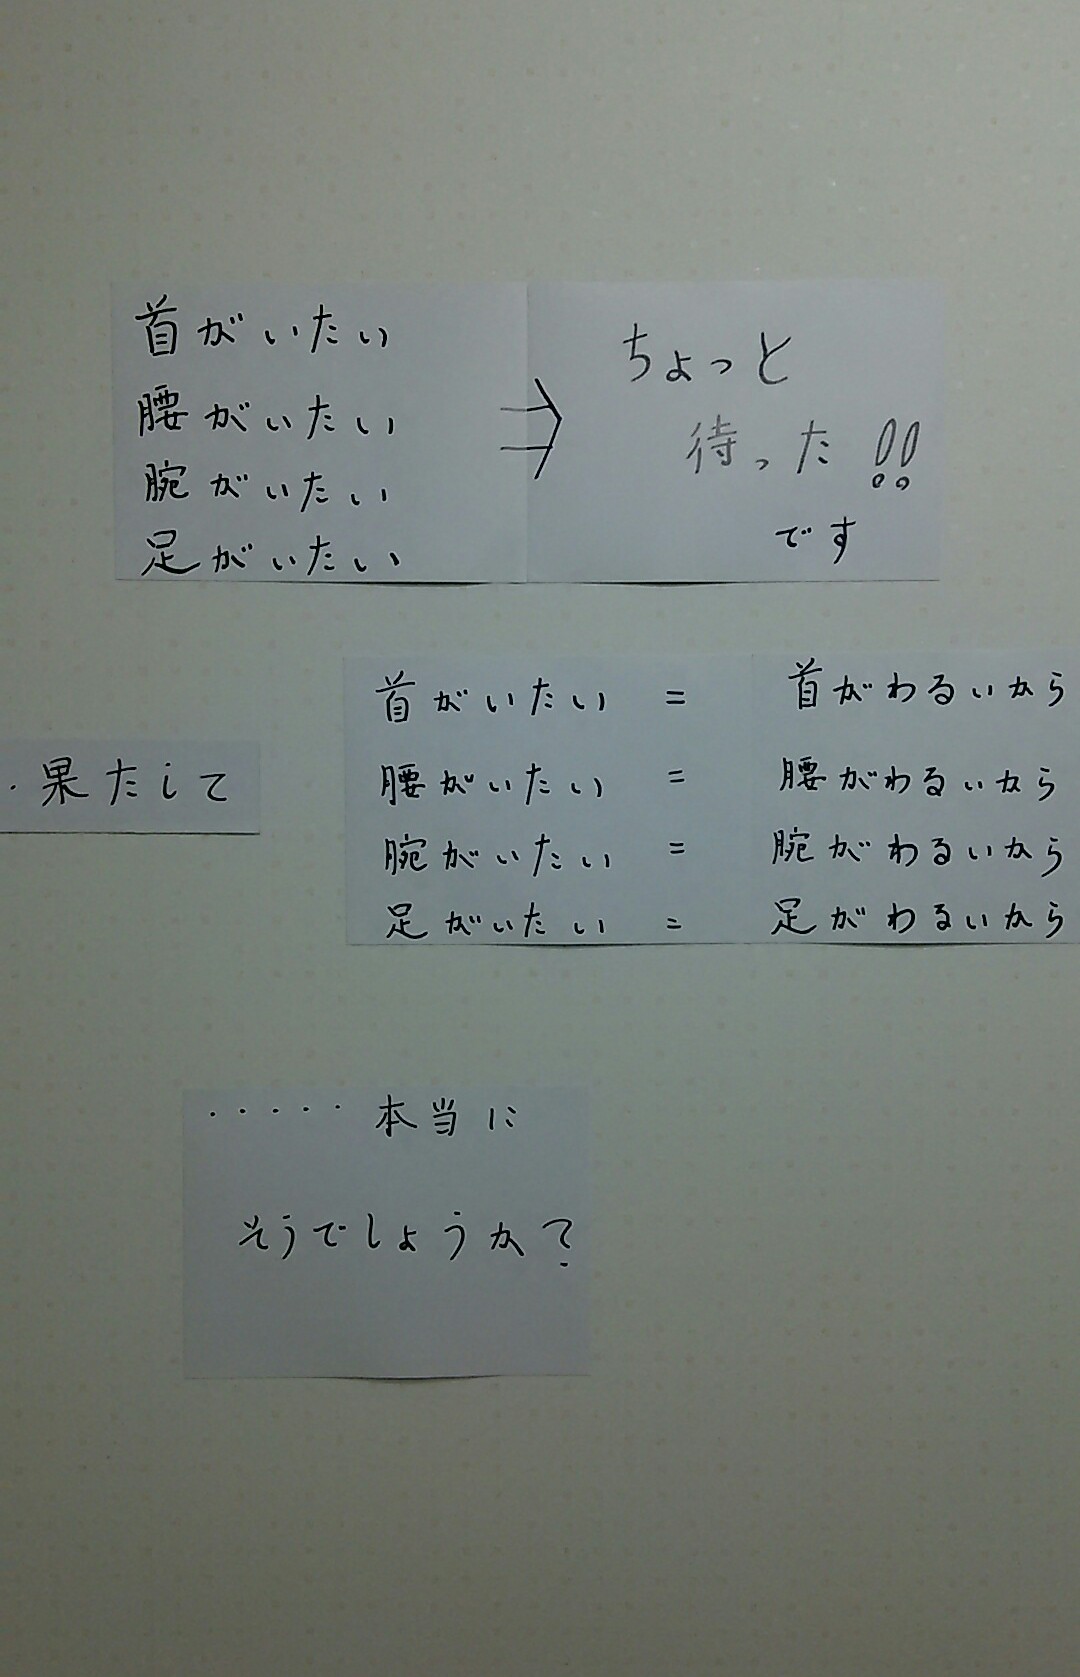 首がいたい
腰がいたい
腕がいたい
足がいたい
⇒
ちょっと
待った!!
です
・果たして
首がいたい = 首がわるいから
腰がいたい = 腰がわるいから
腕がいたい = 腕がわるいから
足がいたい = 足がわるいから
・・・・・本当に
そうでしょうか?